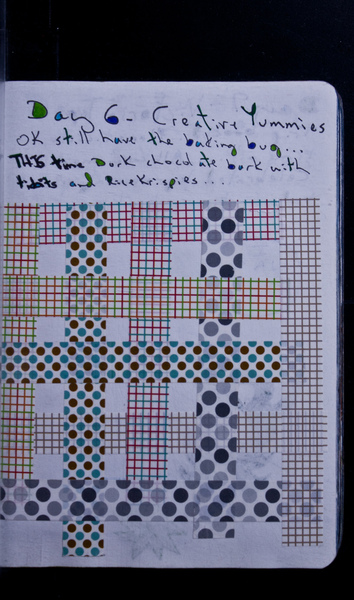 Day 6- Creative Yummies
OK still have the baking bug...
This time Dark chocolate bark with
tidbits and Rice Krispies...